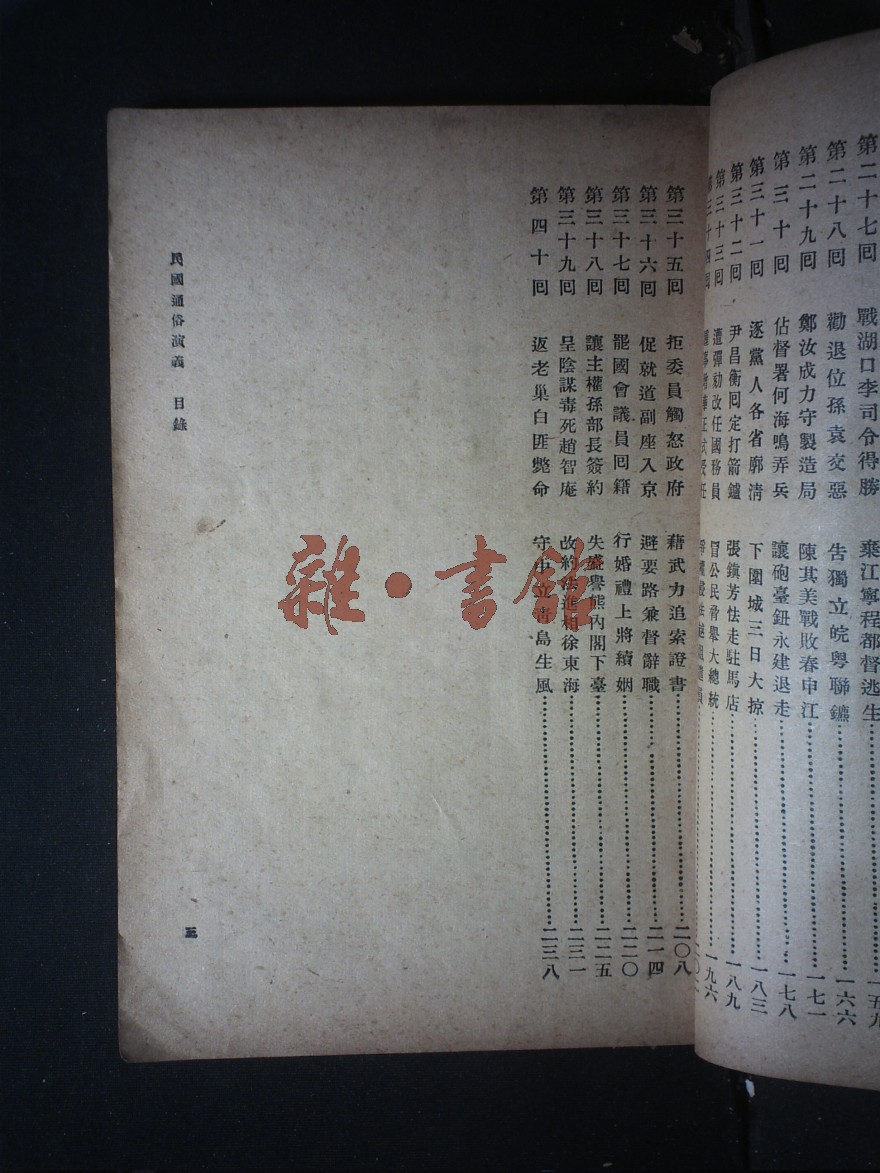 第二十七囘 戰湖口李司令得勝 棄江寧程都督逃生 一五九
第二十八囘 勸退位孫袁交惡 告獨立皖粵聯鑣 一六六
第二十九囘 鄭汝成力守製造局 陳其美戰敗春申江 一七一
第三十囘 佔督署何海鳴弄兵 讓砲臺鈕永建退走 一七八
第三十一囘 逐黨人各省廓淸 下圍城三日大掠 一八三
第三十二囘 尹昌衡囘定打箭鑪 張鎭芳怯走駐馬店 一八九
第三十三囘 遭彈劾改任國務員 冒公民脅舉大總統 一九六
第三十四囘 正式授任
第三十五囘 拒委員觸怒政府 藉武力追索證書 二〇八
第三十六囘 促就道副座入京 避要路兼督辭職 二一四
第三十七囘 罷國會議員囘籍 行婚禮上將續姻 二二〇
第三十八囘 讓主權孫部長簽約 失盛譽熊內閣下臺 二二五
第三十九囘 呈陰謀毒死趙智庵 改約法進相徐東海 二三一
第四十囘 返老巢白匪斃命 守中立靑島生風 二三八
民國通俗演義 目錄
三
雜·書館